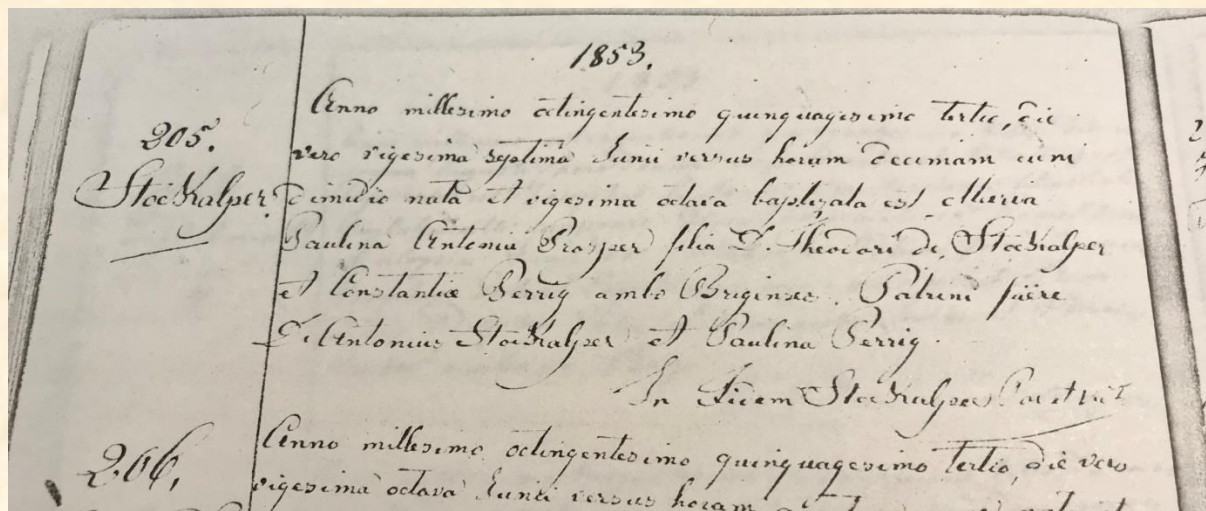 1853.
205.
Stockalper.
Anno millesimo octingentesimo quinquagesimo tertio, die
vero vigesima septima Junii versus horam decimam cum
dimidio nata et vigesima octava baptizata est Maria
Paulina Antonia Prosper filia D. Theodori de Stockalper
et Constantiæ Perrig ambo Briginses. Patrini fuëre
D. Antonius Stockalper et Paulina Perrig.
In Fidem Stockalper Par et
206.
Anno millesimo octingentesimo quinquagesimo tertio, die vero
vigesima octava Junii versus horam